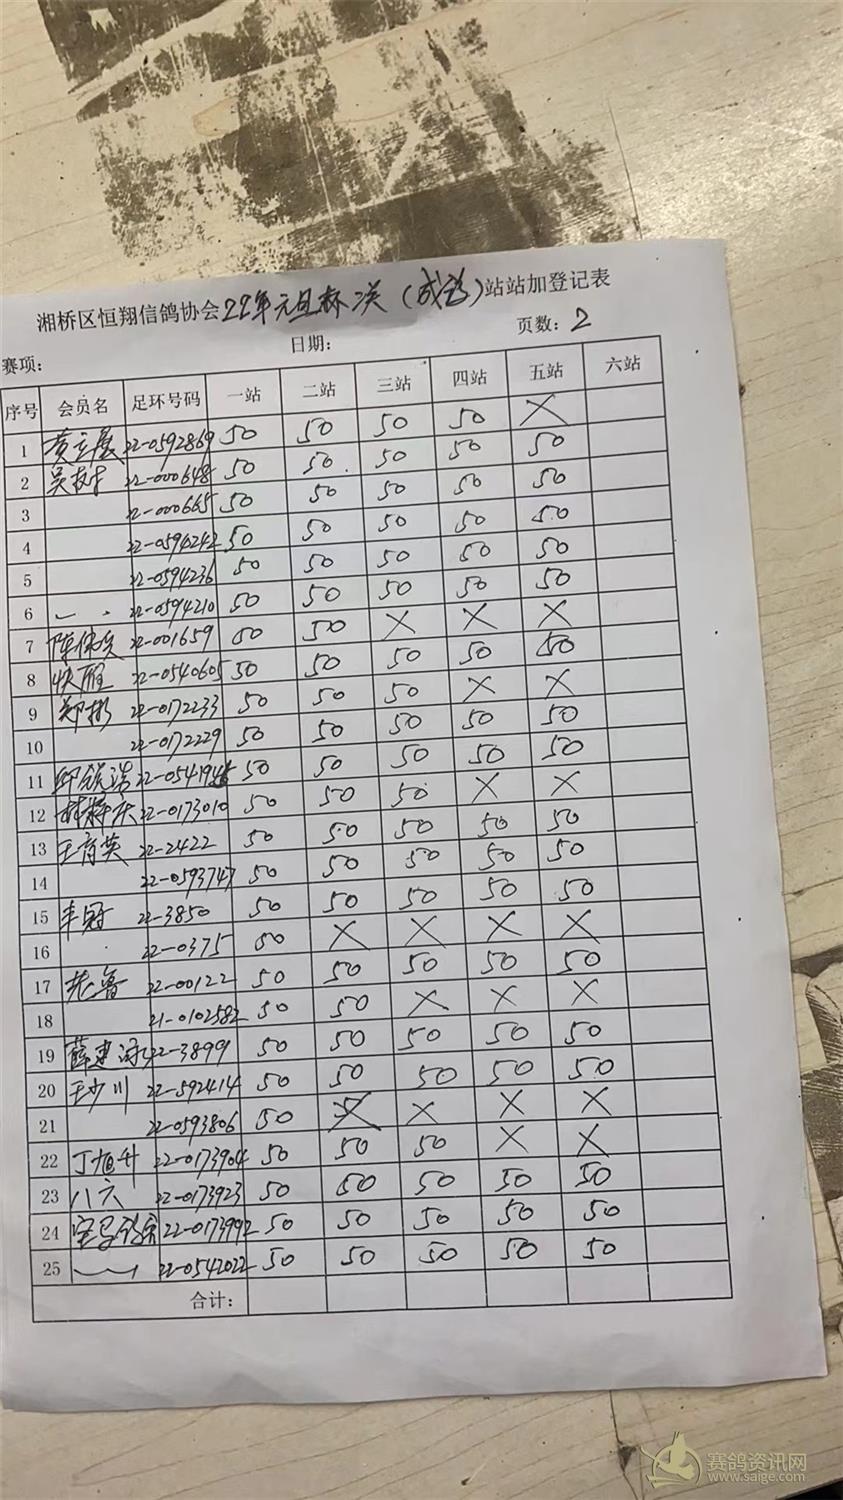 湘桥区恒翔信鸽协会22年元旦杯 (成鸽)站站加登记表
赛项: 日期: 页数: 2
序号 会员名 足环号码 一站 二站 三站 四站 五站 六站
1 黄立展 22-0592869 50 50 50 50 X
2 吴树 22-000648 50 50 50 50 50
3 22-000665 50 50 50 50 50
4 22-0594242 50 50 50 50 50
5 22-0594236 50 50 50 50 50
6 22-0594210 50 50 50 50 50
7 22-001659 50 50 X X X
8 快雁 22-0540605 50 50 50 50 50
9 郑彬 22-0172233 50 50 50 X X
10 22-0172229 50 50 50 50 50
11 22-0541945 50 50 50 50 50
12 22-0173010 50 50 50 X X
13 王育英 22-2422 50 50 50 50 50
14 22-0593747 50 50 50 50 50
15 丰冠 22-3850 50 50 50 50 50
16 22-0375 50 X X X X
17 22-00122 50 50 50 50 50
18 21-0102582 50 50 X X X
19 22-3899 50 50 50 50 50
20 王少川 22-592414 50 50 50 50 50
21 22-0593806 50 X X X X
22 丁旭升 22-0173904 50 50 50 X X
23 八六 22-0173923 50 50 50 50 50
24 22-0173992 50 50 50 50 50
25 22-0542022 50 50 50 50 50
合计:
赛鸽资讯网
www.saige.com